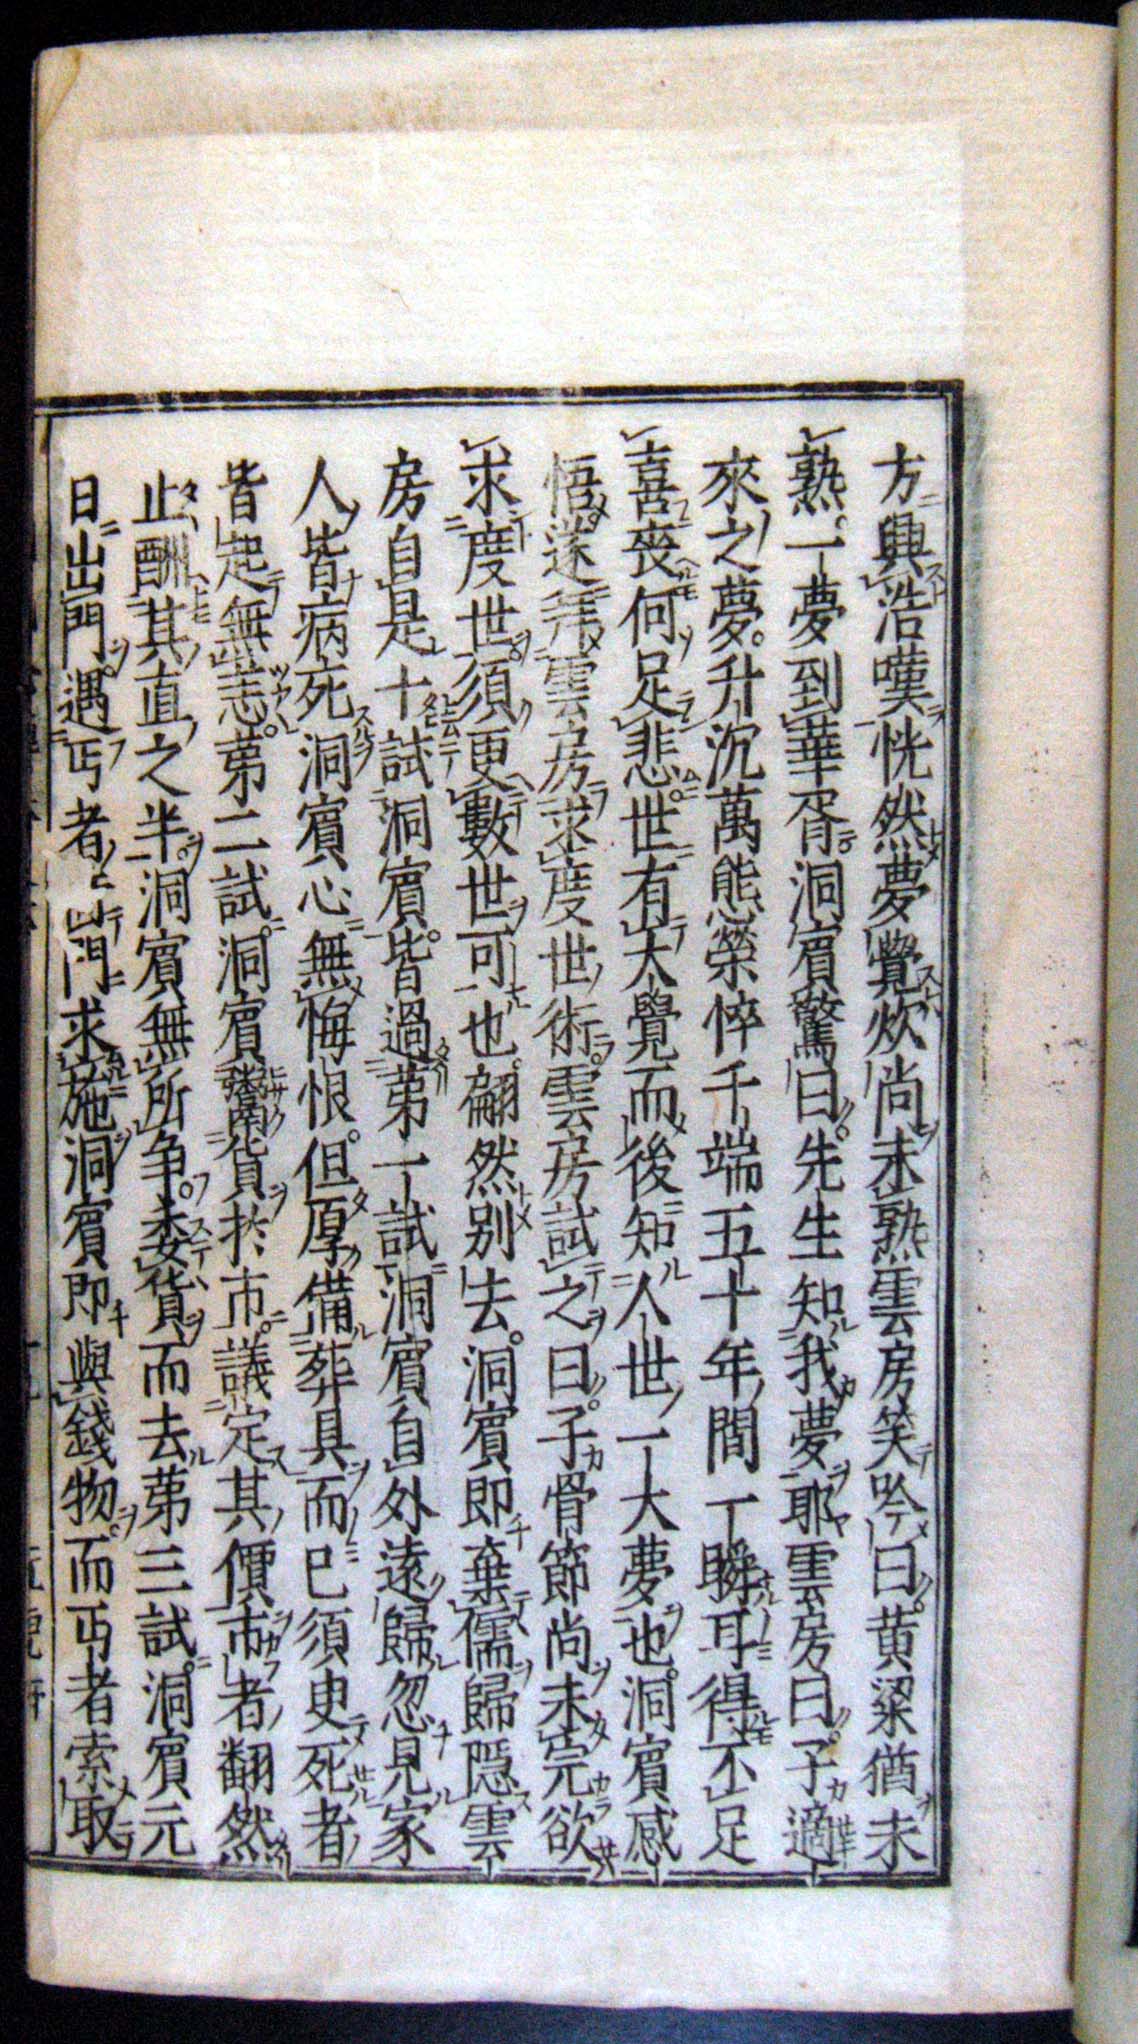 方興浩嘆恍然夢覺炊尚未熟雲房笑吟曰黄粱猶未
熟一夢到華胥洞賓驚曰先生知我夢耶雲房曰子適
來之夢升沉萬態榮悴千端五十年間一瞬耳得不足
喜喪何足悲世有大覺而後知人世一大夢也洞賓感
悟遂拜雲房求度世術雲房試之曰子骨節尚未完欲
求度世須更數世可也翩然别去洞賓即棄儒歸隠雲
房自是十試洞賓皆過第一試洞賓自外遠歸忽見家
人皆病死洞賓心無悔恨但厚備葬具而已須史死者
皆起無恙第二試洞賓鬻貨於市議定其價市者翻然
止酬其直之半洞賓無所争委貨而去第三試洞賓元
日出門遇丐者門求施洞賓即與錢物而丐者索取